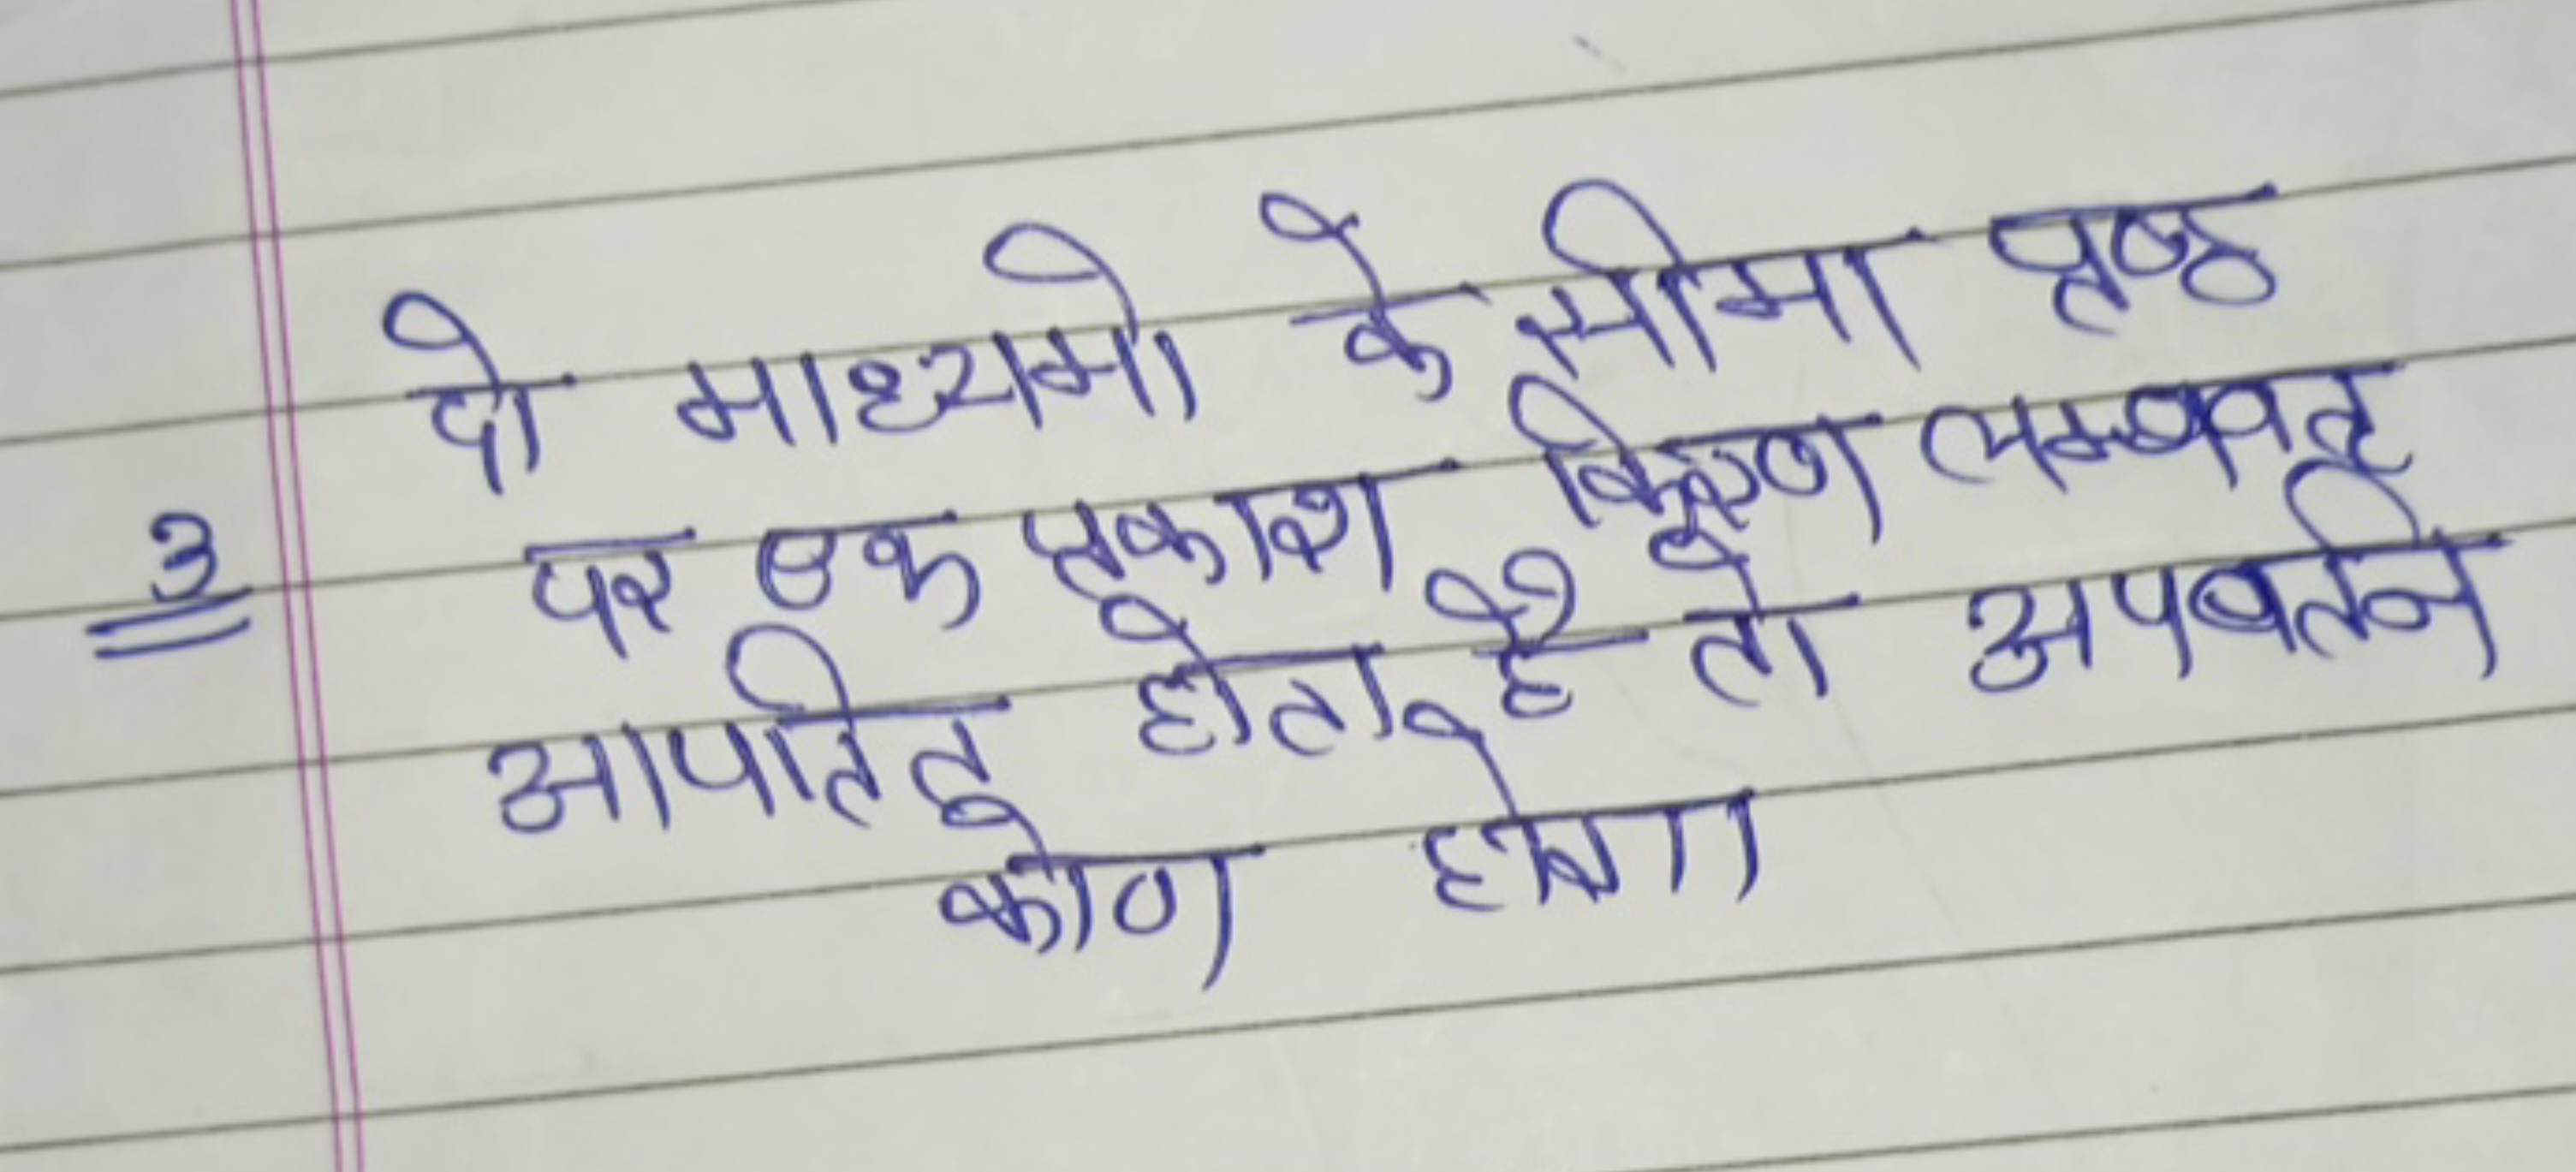 दो माध्यमो के सीमा पृष्ठ
3 पर एक प्रकाश किरण लम्बवत्
आपतित होता है तो अपवर्तन
कोण होगा